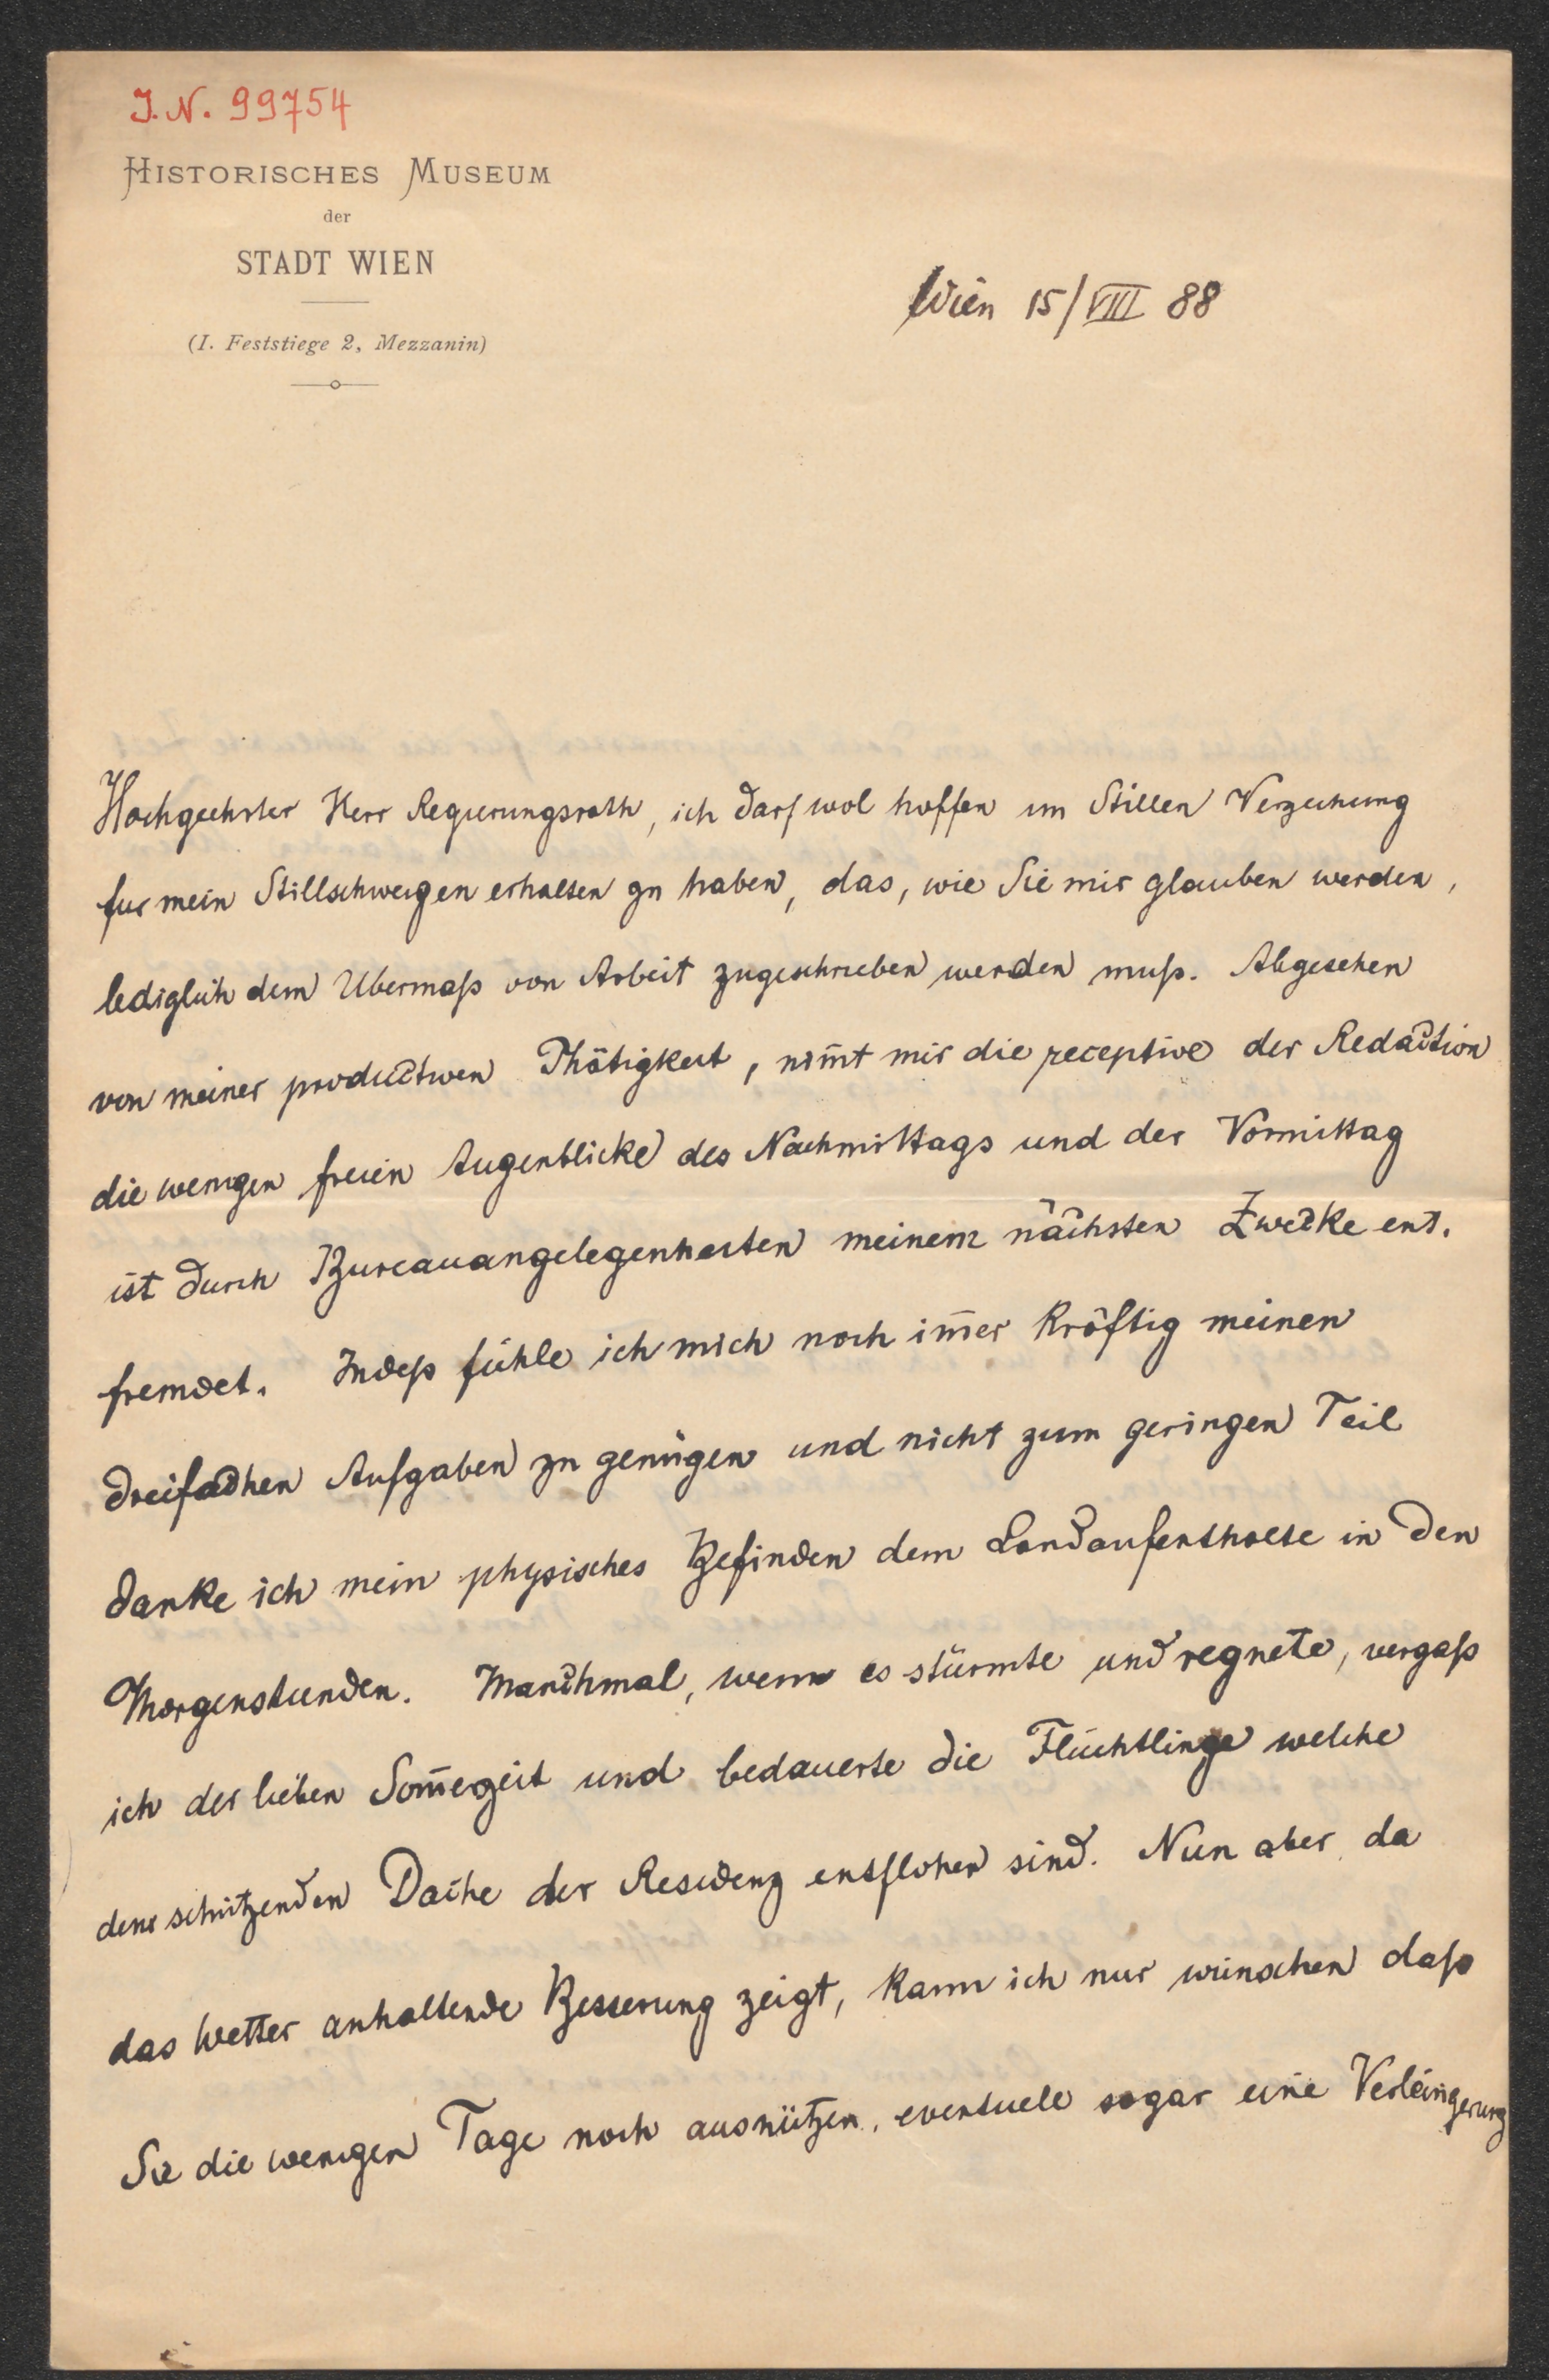 J.N. 99754
HISTORISCHES MUSEUM
der
STADT WIEN
(I. Feststiege 2, Mezzanin)
Wien 15/VIII 88
Hochgeehrter Herr Regierungsrath, ich darf wol hoffen im Stillen Verzeihung
für mein Stillschweigen erhalten zu haben, das, wie Sie mir glauben werden,
lediglich dem Übermaß von Arbeit zugeschrieben werden muß. Abgesehen
von meiner productiven Thätigkeit, nim̄t mir die receptive der Redaction
die wenigen freien Augenblicke des Nachmittags und der Vormittag
ist durch Bureauangelegenheiten meinem nächsten Zwecke ent-
fremdet. Indeß fühle ich mich noch im̄er kräftig meinen
dreifachen Aufgaben zu genügen und nicht zum geringen Teil
danke ich mein physisches Befinden dem Landaufenthalte in den
Morgenstunden. Manchmal, wenn es stürmte und regnete, vergaß
ich der lieben Som̄erzeit und bedauerte die Flüchtlinge welche
dem schützenden Dache der Residenz entflohen sind. Nun aber da
das Wetter anhaltende Besserung zeigt, kann ich nur wünschen daß
Sie die wenigen Tage noch ausnützen, eventuele sogar eine Verlängerung